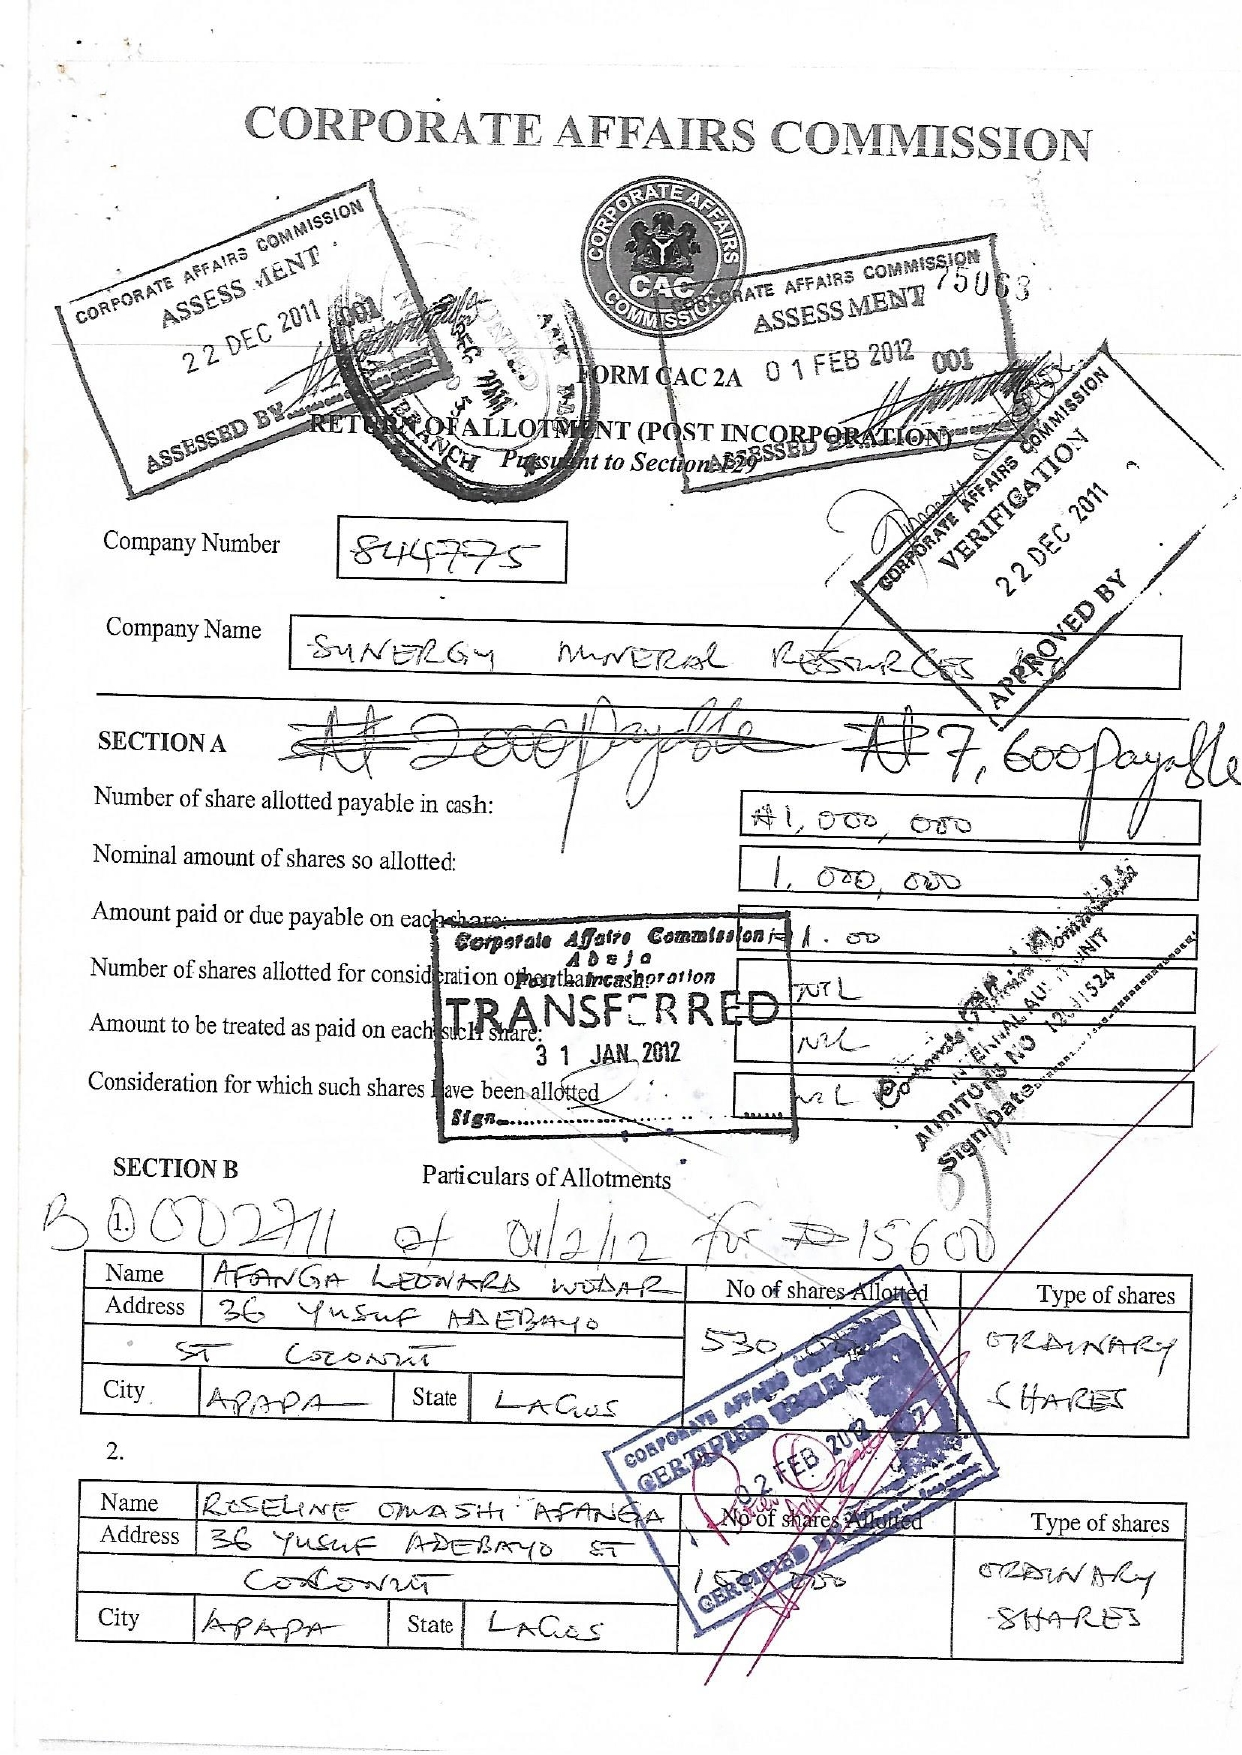 CORPORATE AFFAIRS COMMISSION
CORPORATE AFFAIRS COMMISSION
CAC
CORPORATE AFFAIRS COMMISSION
ASSESSMENT
22 DEC 2011
001
ASSESSED BY
BRANCH
DEC 2011
CORPORATE AFFAIRS COMMISSION
75063
ASSESSMENT
01 FEB 2012
001
ASSESSED BY
FORM CAC 2A
RETURN OF ALLOTMENT (POST INCORPORATION)
Pursuant to Section 129
CORPORATE AFFAIRS COMMISSION
VERIFICATION
22 DEC 2011
APPROVED BY
Company Number
844775
Company Name
SUNERGY MINERAL RESOURCES
SECTION A
₦ 2000 payable
₦ 7,600 payable
Number of share allotted payable in cash:
₦1,000,000
Nominal amount of shares so allotted:
1,000,000
Amount paid or due payable on each share:
1.00
Number of shares allotted for consideration other than in cash:
NIL
Amount to be treated as paid on each such share:
NIL
Consideration for which such shares have been allotted
NIL
Corporate Affairs Commission
Abuja
Post Incorporation
TRANSFERRED
31 JAN 2012
Sign
INTERNAL AUDIT UNIT
AUDITORS NO
Sign/Date
SECTION B
Particulars of Allotments
B 0002711 of 01/2/12 for ₦15600
1.
Name AFANGA LEONARD WODAR
No of shares Allotted
Type of shares
Address 36 YUSUF ADEBAYO
530,
ORDINARY
ST COCONUT
SHARES
City APAPA State LAGOS
CORPORATE AFFAIRS COMMISSION
CERTIFIED TRUE
02 FEB 2012
CERTIFIED BY
2.
Name ROSELINE OMASHI AFANGA
No of shares Allotted
Type of shares
Address 36 YUSUF ADEBAYO ST
ORDINARY
COCONUT
SHARES
City APAPA State LAGOS